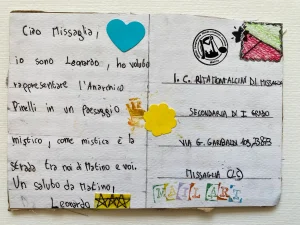 Ciao Missaglia,
io sono Leonardo, ho voluto
rappresentare l'Anarchico
Pinelli in un paesaggio
mistico, come mistica è la
strada tra noi di Matino e voi.
Un saluto da Matino,
Leonardo
I.C. RITA MONTALCINI DI MISSAGLIA
SECONDARIA DI I GRADO
VIA G. GARIBALDI 109, 23873
MISSAGLIA (LC)
MAIL ART